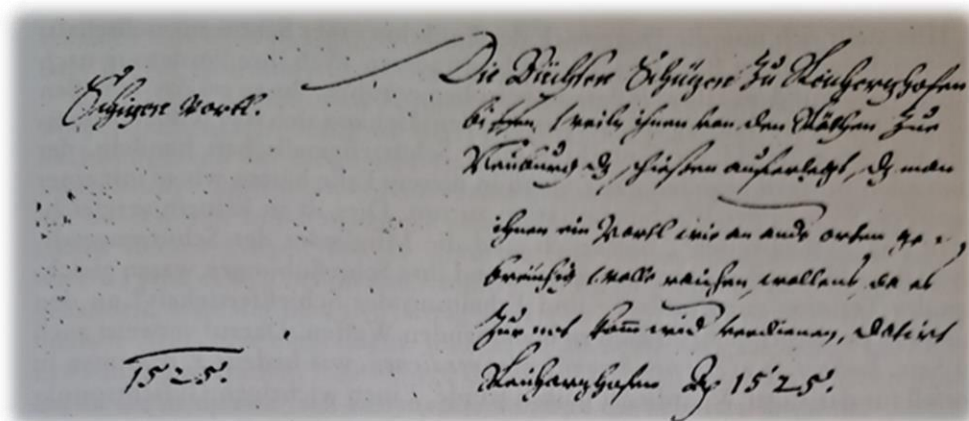 Schizen Vortl.
1525.
Die Büchsen Schüzen zu Reichertzhofen
bitten, weiln ihnen von den Räthen zue
Neuburg dz schiessen auferlegt, dz man
ihnen ein Vortl wie an ande orten ge-
breichig wolle raichen, wollens da es
zur not kom wid verdienen, datirt
Reichertzhofen Aº 1525.